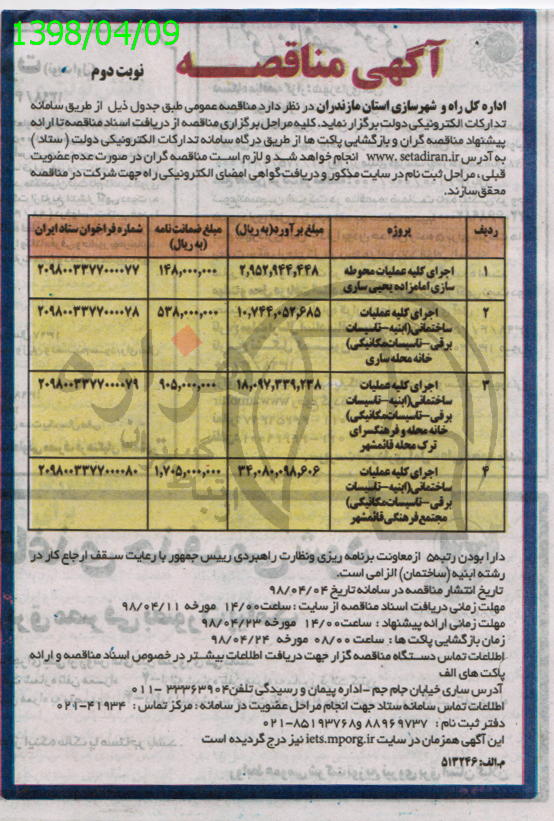 1398/04/09
آگهی مناقصه
نوبت دوم
اداره کل راه و شهرسازی استان مازندران در نظر دارد مناقصه عمومی طبق جدول ذیل از طریق سامانه
تدارکات الکترونیکی دولت برگزار نماید. کلیه مراحل برگزاری مناقصه از دریافت اسناد مناقصه تا ارائه
پیشنهاد مناقصه گران و بازگشایی پاکت ها از طریق درگاه سامانه تدارکات الکترونیکی دولت ( ستاد )
به آدرس www. setadiran.ir انجام خواهد شد و لازم است مناقصه گران در صورت عدم عضویت
قبلی ، مراحل ثبت نام در سایت مذکور و دریافت گواهی امضای الکترونیکی راه جهت شرکت در مناقصه
محقق سازند.
ردیف پروژه مبلغ برآورد(به ریال) مبلغ ضمانت نامه (به ریال) شماره فراخوان ستاد ایران
۱ اجرای کلیه عملیات محوطه ۲,۹۵۲,۹۴۴,۴۴۸ ۱۴۸,۰۰۰,۰۰۰ ۲۰۹۸۰۰۳۳۷۷۰۰۰۰۷۷
سازی امامزاده یحیی ساری
۲ اجرای کلیه عملیات ۱۰,۷۴۴,۰۵۲,۶۸۵ ۵۳۸,۰۰۰,۰۰۰ ۲۰۹۸۰۰۳۳۷۷۰۰۰۰۷۸
ساختمانی(ابنیه-تاسیسات
برقی-تاسیسات مکانیکی)
خانه محله ساری
۳ اجرای کلیه عملیات ۱۸,۰۹۷,۳۳۹,۲۳۸ ۹۰۵,۰۰۰,۰۰۰ ۲۰۹۸۰۰۳۳۷۷۰۰۰۰۷۹
ساختمانی(ابنیه-تاسیسات
برقی-تاسیسات مکانیکی)
خانه محله و فرهنگسرای
ترک محله قائمشهر
۴ اجرای کلیه عملیات ۳۴,۰۸۰,۰۹۸,۶۰۶ ۱,۷۰۵,۰۰۰,۰۰۰ ۲۰۹۸۰۰۳۳۷۷۰۰۰۰۸۰
ساختمانی(ابنیه-تاسیسات
برقی-تاسیسات مکانیکی)
مجتمع فرهنگی قائمشهر
دارا بودن رتبه۵ از معاونت برنامه ریزی ونظارت راهبردی رییس جمهور با رعایت سقف ارجاع کار در
رشته ابنیه (ساختمان) الزامی است.
تاریخ انتشار مناقصه در سامانه تاریخ ۹۸/۰۴/۰۴
مهلت زمانی دریافت اسناد مناقصه از سایت : ساعت ۱۴/۰۰ مورخه ۹۸/۰۴/۱۱
مهلت زمانی ارائه پیشنهاد : ساعت ۱۴/۰۰ مورخه ۹۸/۰۴/۲۳
زمان بازگشایی پاکت ها : ساعت ۰۸/۰۰ مورخه ۹۸/۰۴/۲۴
اطلاعات تماس دستگاه مناقصه گزار جهت دریافت اطلاعات بیشتر در خصوص اسناد مناقصه و ارائه
پاکت های الف
آدرس ساری خیابان جام جم -اداره پیمان و رسیدگی تلفن ۳۳۳۶۳۹۰۴ -۰۱۱
اطلاعات تماس سامانه ستاد جهت انجام مراحل عضویت در سامانه : مرکز تماس : ۴۱۹۳۴-۰۲۱
دفتر ثبت نام : ۸۸۹۶۹۷۳۷ و۸۵۱۹۳۷۶۸-۰۲۱
این آگهی همزمان در سایت iets.mporg.ir نیز درج گردیده است
م.الف: ۵۱۳۲۴۶